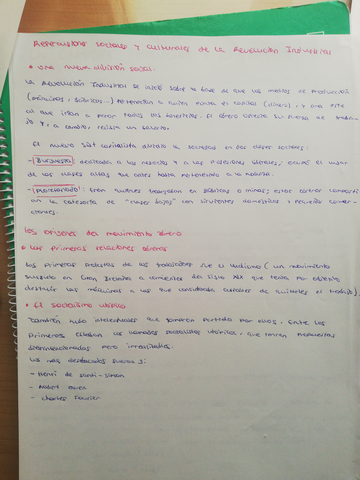 Repercusiones sociales y culturales de la Revolución Industrial
• Una nueva división social.
La Revolución Industrial se asentó sobre la base de que los medios de producción
(máquinas, fábricas...) pertenecían a quien ponía el capital (dinero), y a éste
el que iban a parar todos los beneficios. El obrero ofrecía su fuerza de trabajo
y, a cambio, recibía un salario.
El nuevo sist capitalista dividió la sociedad en dos clases sociales:
- Burguesía: dedicada a los negocios y a las profesiones liberales, ocupó el lugar
de las clases altas que antes había pertenecido a la nobleza.
- Proletariado: Eran quienes trabajaban en fábricas o minas; estos obreros compartían
la categoría de "clases bajas" con sirvientes domésticos y pequeños comerciantes.
Los orígenes del movimiento obrero
• Las primeras reacciones obreras
Las primeras protestas de los trabajadores fue el ludismo (un movimiento
surgido en Gran Bretaña a comienzos del siglo XIX que tenía por objetivo
destruir las máquinas a las que consideraban culpables de quitarles el trabajo).
• El socialismo utópico
También hubo intelectuales que tomaron partido por ellos. Entre los
primeros estaban los llamados socialistas utópicos, que tenían propuestas
pero irrealizables.
Los más destacados fueron:
- Henri de Saint-Simon
- Robert Owen
- Charles Fourier